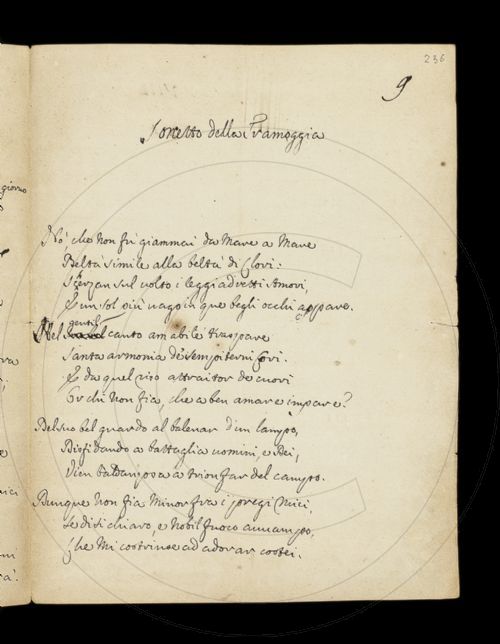 236
9
Sonetto della Framoggia
Nò, che non fù giammai da Mare a Mare
Beltà simile alla beltà di Clori:
Scerzan sul volto i leggiadretti Amori,
E un sol più vago in que begli occhi appare.
Nel gentil canto amabile traspare
Santa armonia de sempiterni Cori.
E da quel riso attraitor de cuori
Or chi non fia, che a ben amare impare?
Del suo bel guardo al balenar d'un lampo,
Disfidando a battaglia uomini, e Dei,
Vien baldanzosa a trionfar del campo.
Dunque non fia minor fra i pregi miei,
Se di sì chiaro, e nobil fuoco avvampo,
Che mi costrinse ad adorar costei.
giorno